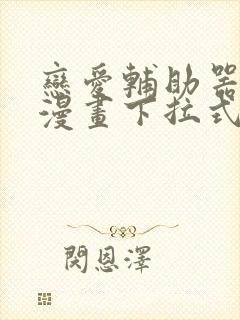 戀愛輔助器
漫畫下拉式
閔恩澤